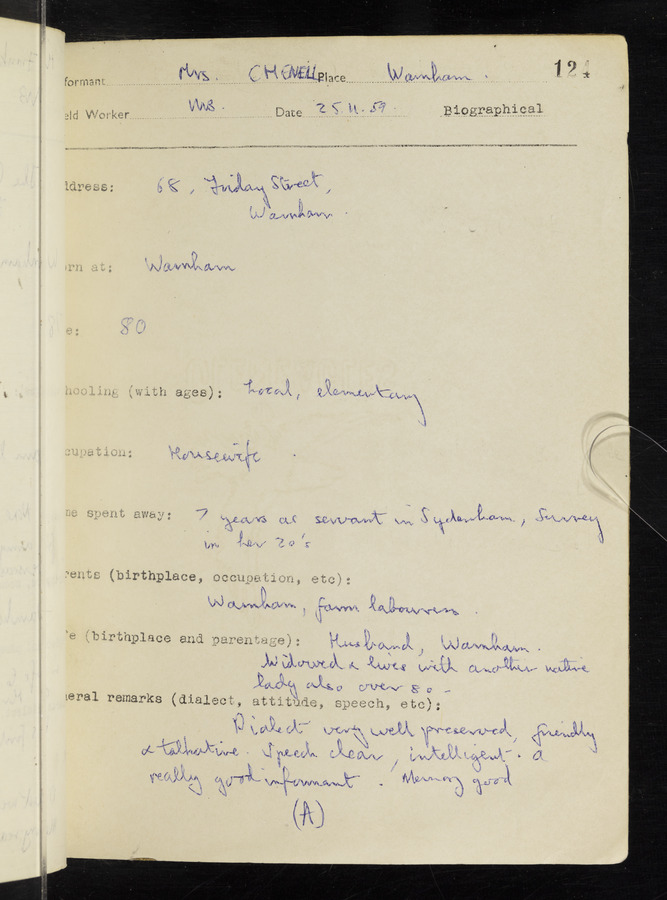 formant Mrs. CHENELL Place Warnham. 124
eld Worker Date 25.11.59. Biographical
ddress: 68, Friday Street,
Warnham.
rn at: Warnham
e: 80
hooling (with ages): Local, elementary
cupation: Housewife.
me spent away: 7 years as servant in Sydenham, Surrey
in her 20's
rents (birthplace, occupation, etc):
Warnham, farm labourers.
fe (birthplace and parentage): Husband, Warnham.
Widowed & lives with another native
lady also over 80-
neral remarks (dialect, attitude, speech, etc):
Dialect very well preserved, friendly
& talkative. Speech clear, intelligent. a
really good informant. Memory good
(A)